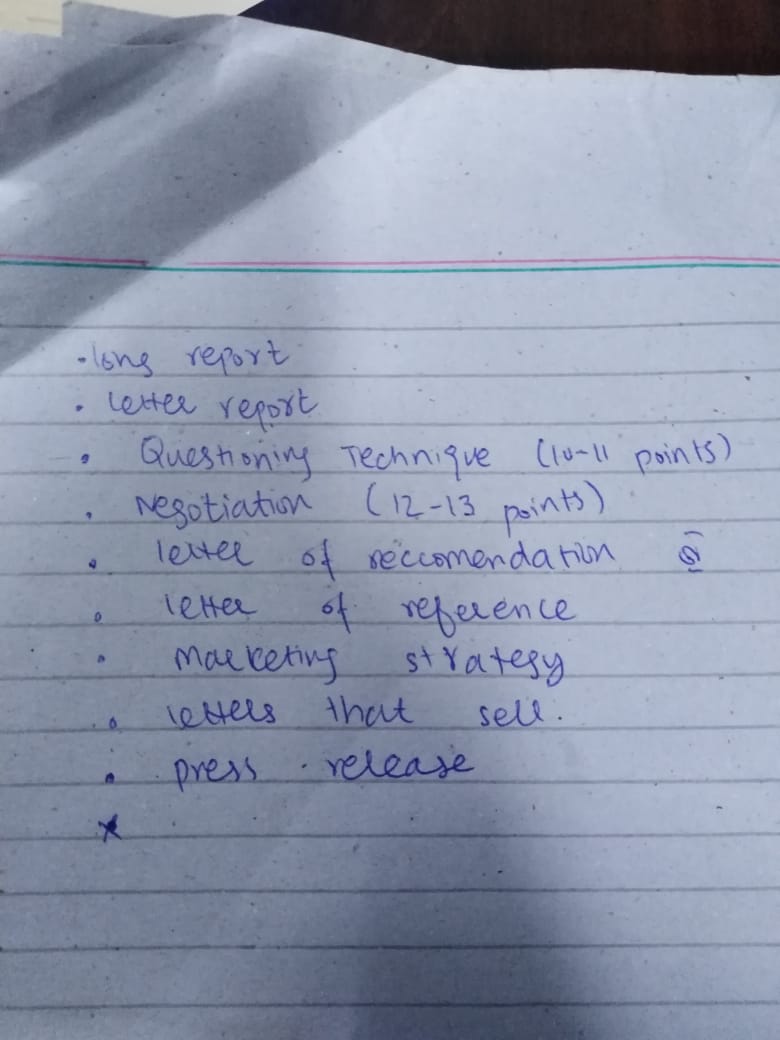 • long report
• letter report
• Questioning Technique (10-11 points)
• Negotiation (12-13 points)
• letter of reccomendation
• letter of reference
• marketing strategy
• letters that sell.
• press release